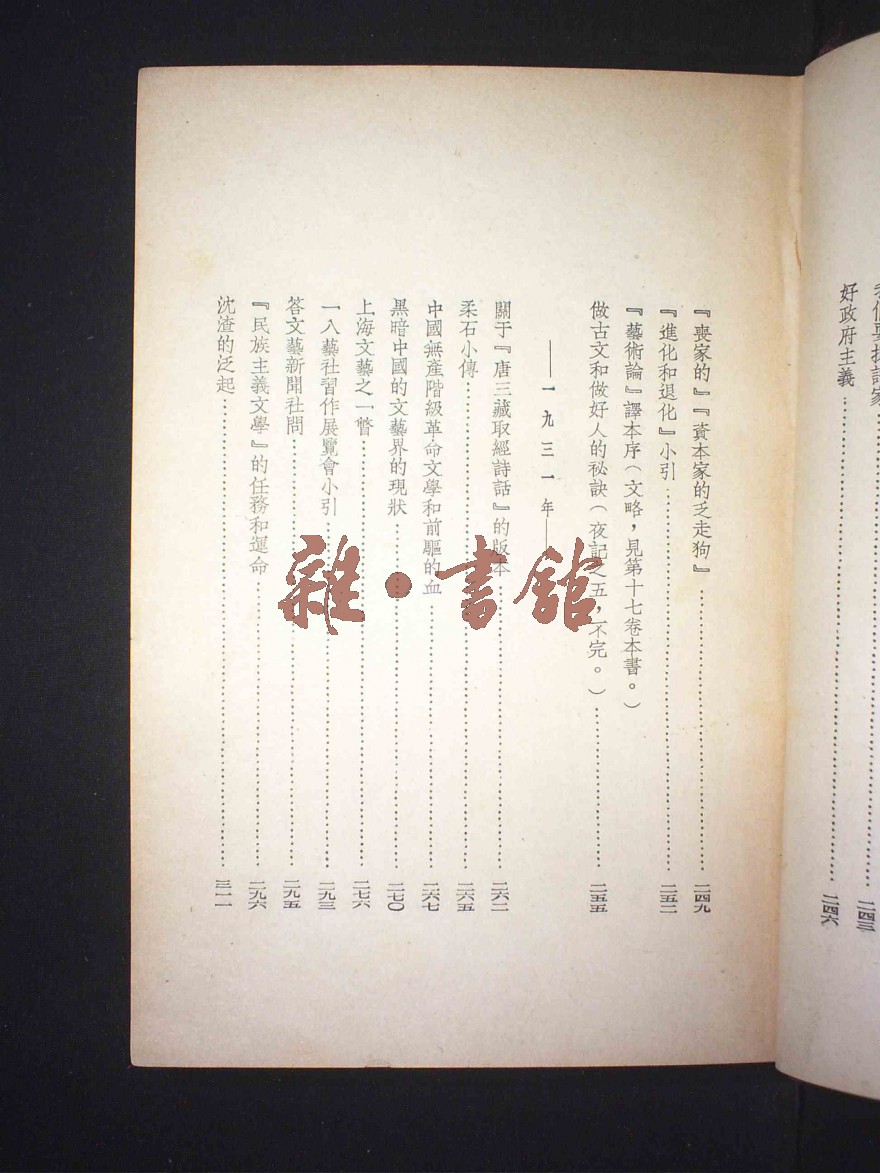 好政府主義……二四六
『喪家的』『資本家的乏走狗』……二四九
『進化和退化』小引……二五二
『藝術論』譯本序（文略，見第十七卷本書。）
做古文和做好人的秘訣（夜記之五，不完。）……二五五
——一九三一年——
關于『唐三藏取經詩話』的版本……二六二
柔石小傳……二六五
中國無產階級革命文學和前驅的血……二六七
黑暗中國的文藝界的現狀……二七〇
上海文藝之一瞥……二七六
一八藝社習作展覽會小引……二九三
答文藝新聞社問……二九五
『民族主義文學』的任務和運命……二九六
沈渣的泛起……三一一
雜·書館